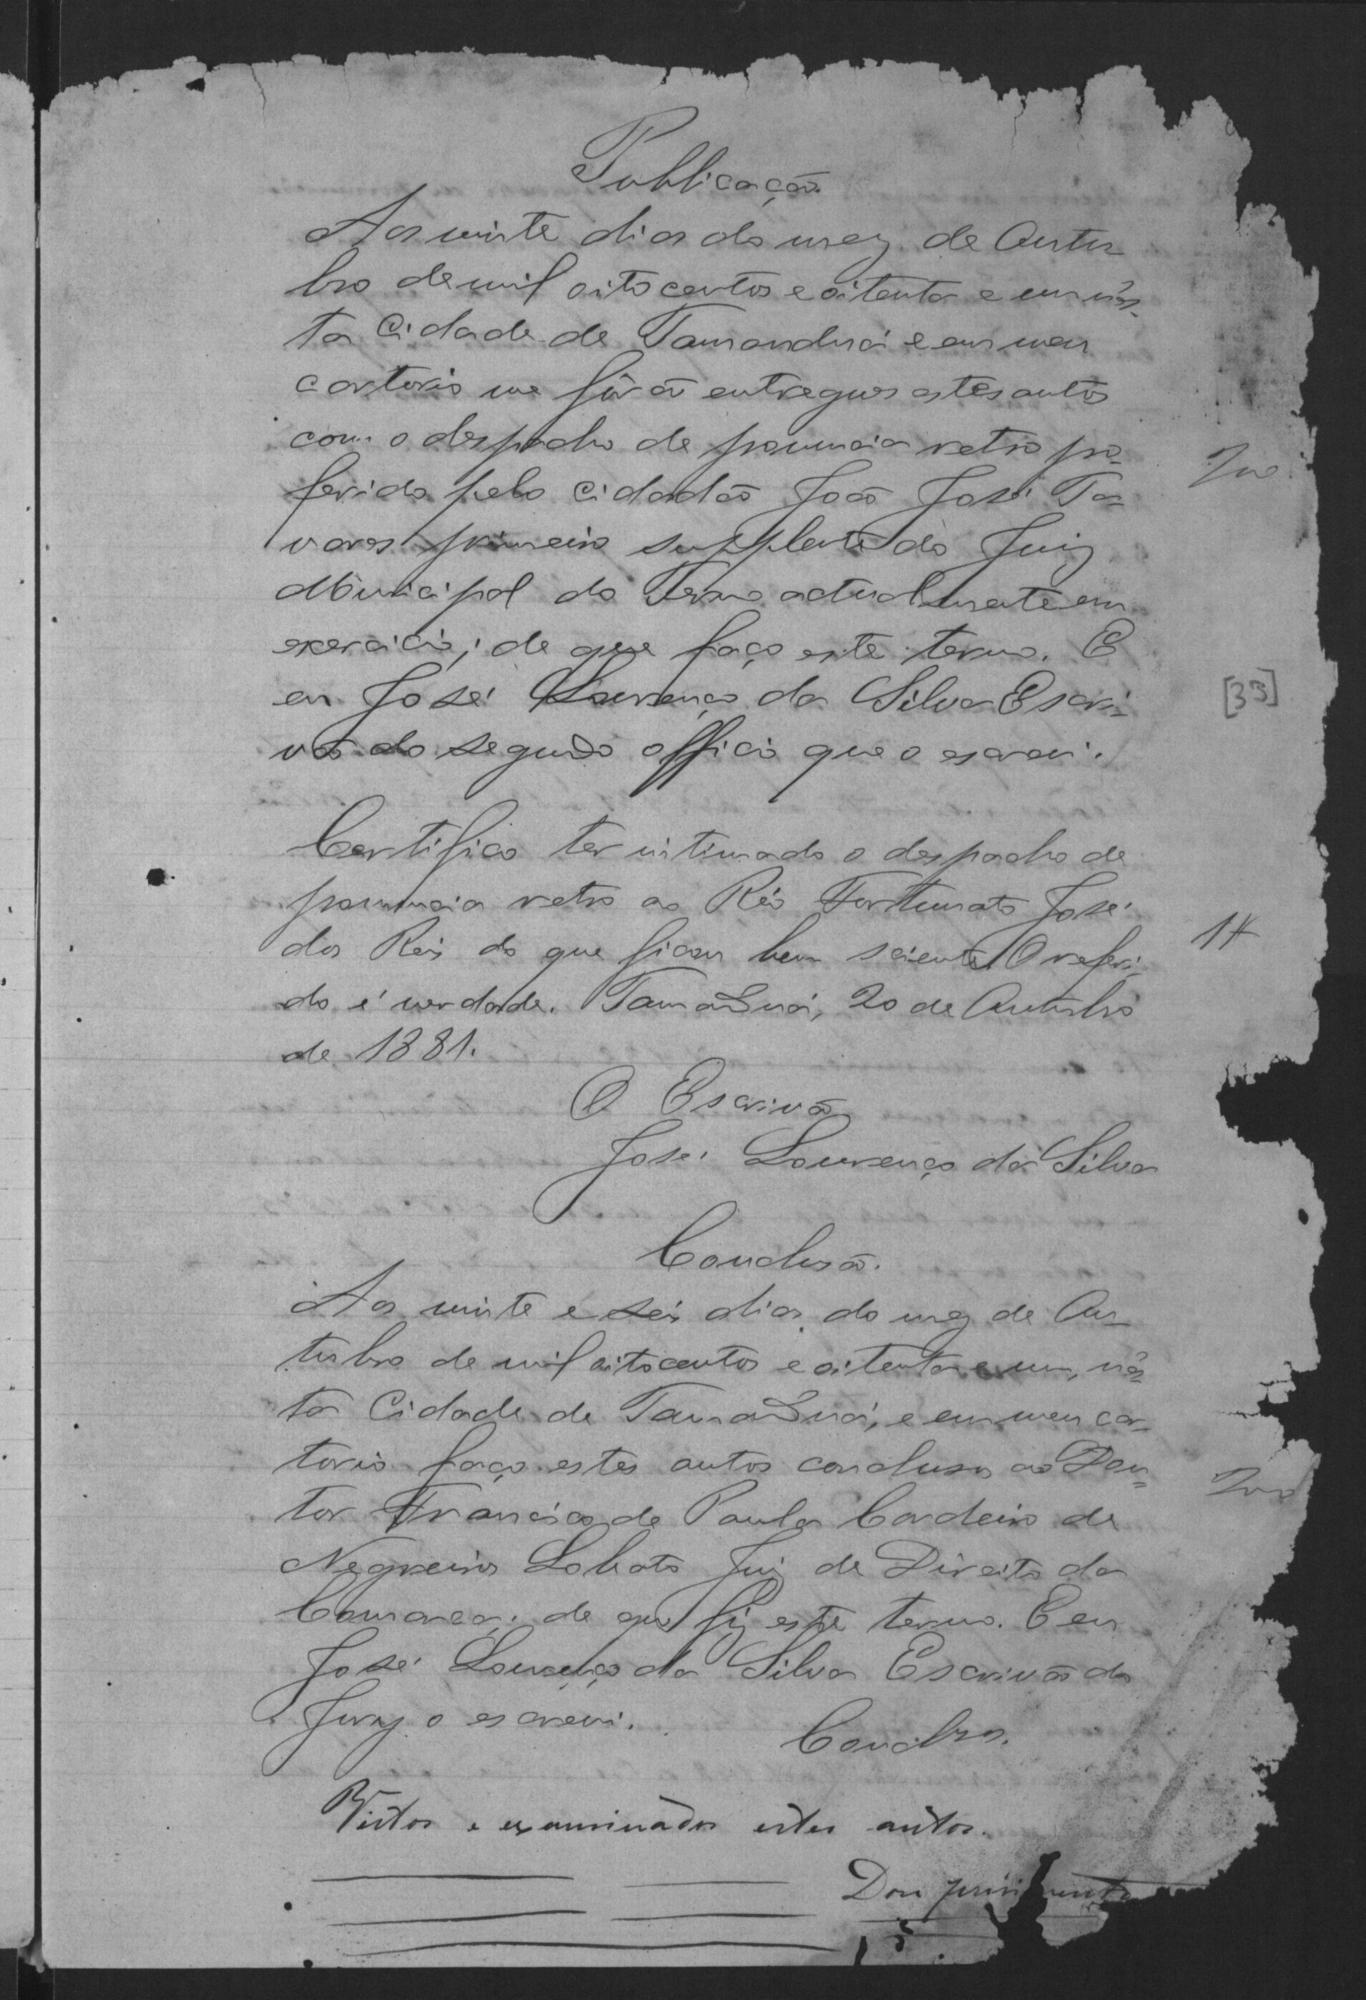 Publicação
Aos vinte dias do mez de Outu
bro de mil oitocentos e oitenta e um, nés-
ta Cidade de Tamanduá e em meu
cartorio me fôrão entregues estes autos
com o despacho de pronuncia retro pro-
ferido pelo cidadão João José Ta-
vares primeiro supplente do Juiz
Municipal do Termo actualmente em
exercicio; de que faço este termo. E
eu José Lourenço da Silva Escri-
vão do segundo officio que o escrevi.
200
[33]
Certifico ter intimado o despacho de
pronuncia retro ao Réo Fortunato José
dos Reis do que ficou bem sciente. O referi-
do é verdade. Tamanduá, 20 de Outubro
de 1881.
1#
O Escrivão
José Lourenço da Silva
Conclusão.
Aos vinte e seis dias do mez de Ou
tubro de mil oitocentos e oitenta e um, nés-
ta Cidade de Tamanduá, e em meu car-
torio faço estes autos conclusos ao Dou-
tor Francisco de Paula Cordeiro de
Negreiros Lobato Juiz de Direito da
Comarca; de que fiz este termo. E eu
José Lourenço da Silva Escrivão do
Jury o escrevi.
200
Conclsos.
Vistos e examinados estes autos.
Dou